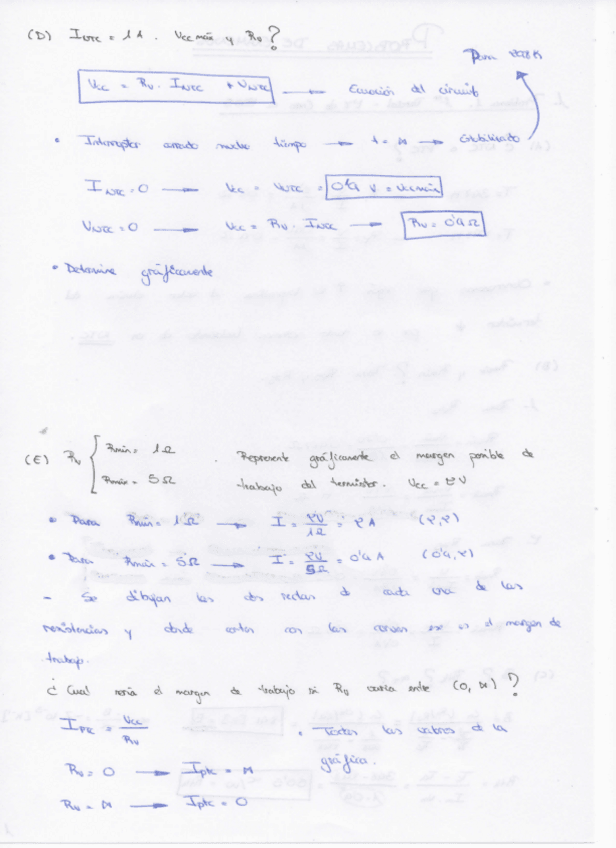 (D) INTC = 1 A. Vcc min y Rv?
Para 298 K
Vcc = Rv · INTC + VNTC → Ecuación del circuito
• Interruptor cerrado mucho tiempo → t = ∞ → Estabilizado
INTC = 0 → Vcc = VNTC = 0'9 V = Vcc min
VNTC = 0 → Vcc = Rv · INTC → Rv = 0'9 Ω
• Determine gráficamente
(E) Rv { Rmin = 1 Ω . Represente gráficamente el margen posible de
Rmax = 5 Ω trabajo del termistor. Vcc = 2 V
• Para Rmin = 1 Ω → I = 2V/1Ω = 2 A (2,2)
• Para Rmax = 5 Ω → I = 2V/5Ω = 0'4 A (0'4,2)
- Se dibujan las dos rectas d cada una de las
resistencias y donde corten con las curvas ese es el margen de
trabajo.
¿Cual seria el margen de trabajo si Rv varia entre (0, ∞)?
IPTC = Vcc/Rv • Todos los valores de la
gráfica.
Rv = 0 → IPTC = ∞
Rv = ∞ → IPTC = 0